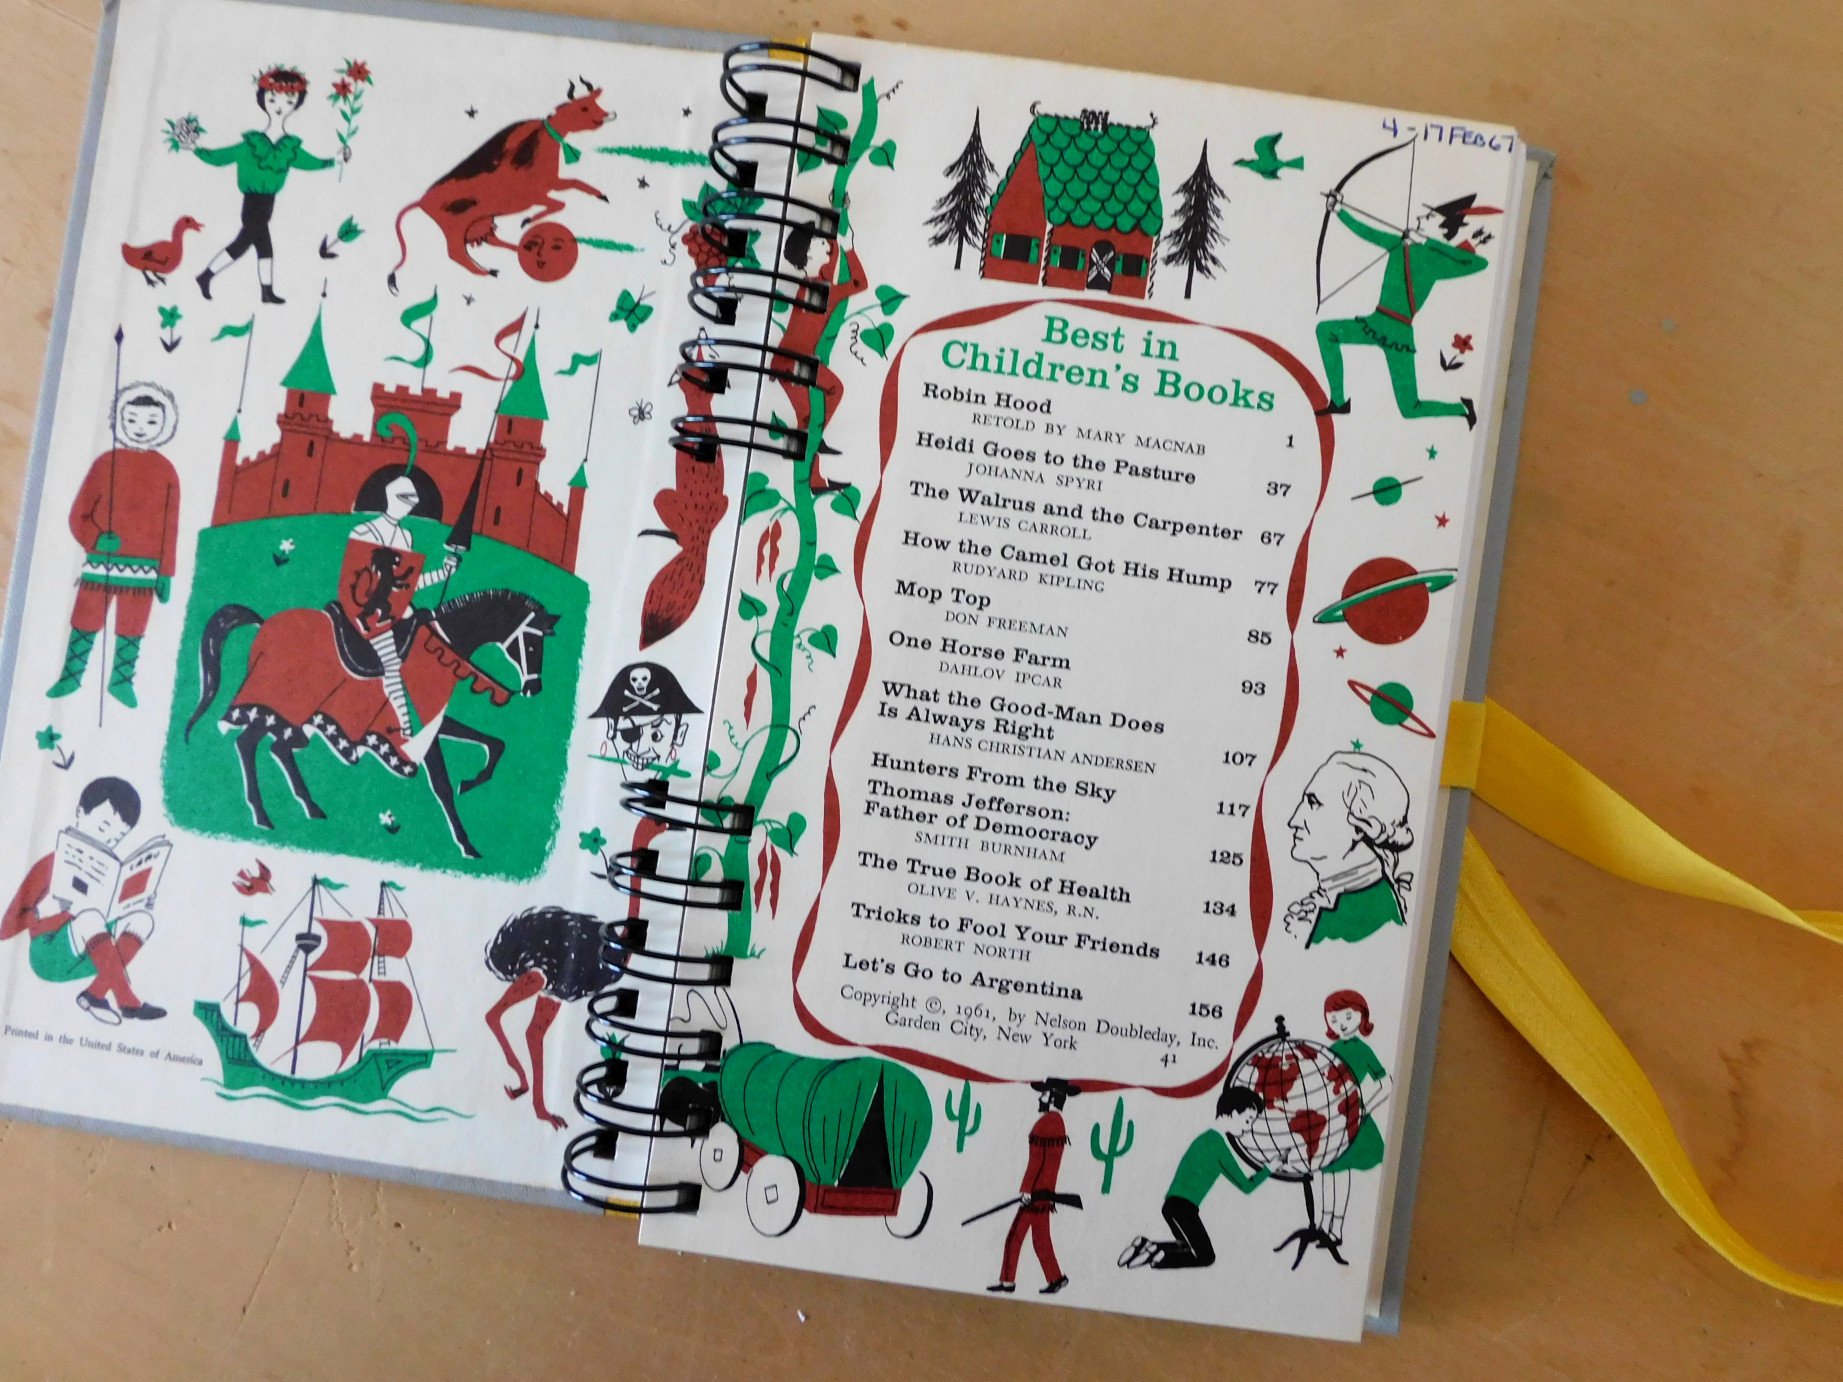 Printed in the United States of America
4-17FEB67
Best in
Children's Books
Robin Hood
RETOLD BY MARY MACNAB 1
Heidi Goes to the Pasture
JOHANNA SPYRI 37
The Walrus and the Carpenter 67
LEWIS CARROLL
How the Camel Got His Hump 77
RUDYARD KIPLING
Mop Top
DON FREEMAN 85
One Horse Farm
DAHLOV IPCAR 93
What the Good-Man Does
Is Always Right
HANS CHRISTIAN ANDERSEN 107
Hunters From the Sky 117
Thomas Jefferson:
Father of Democracy
SMITH BURNHAM 125
The True Book of Health
OLIVE V. HAYNES, R.N. 134
Tricks to Fool Your Friends
ROBERT NORTH 146
Let's Go to Argentina 156
Copyright ©, 1961, by Nelson Doubleday, Inc.
Garden City, New York
41